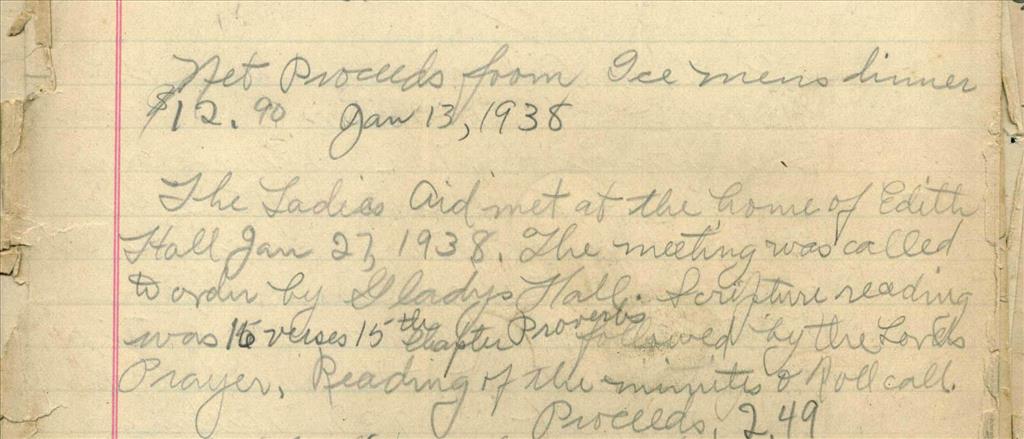 Net Proceeds from Ice mens dinner
$12.90 Jan 13, 1938
The Ladies Aid met at the home of Edith
Hall Jan 27, 1938. The meeting was called
to order by Gladys Hall. Scripture reading
was 16 verses 15th Chapter Proverbs followed by the Lords
Prayer, Reading of the minites & Roll call.
Proceeds, 2.49